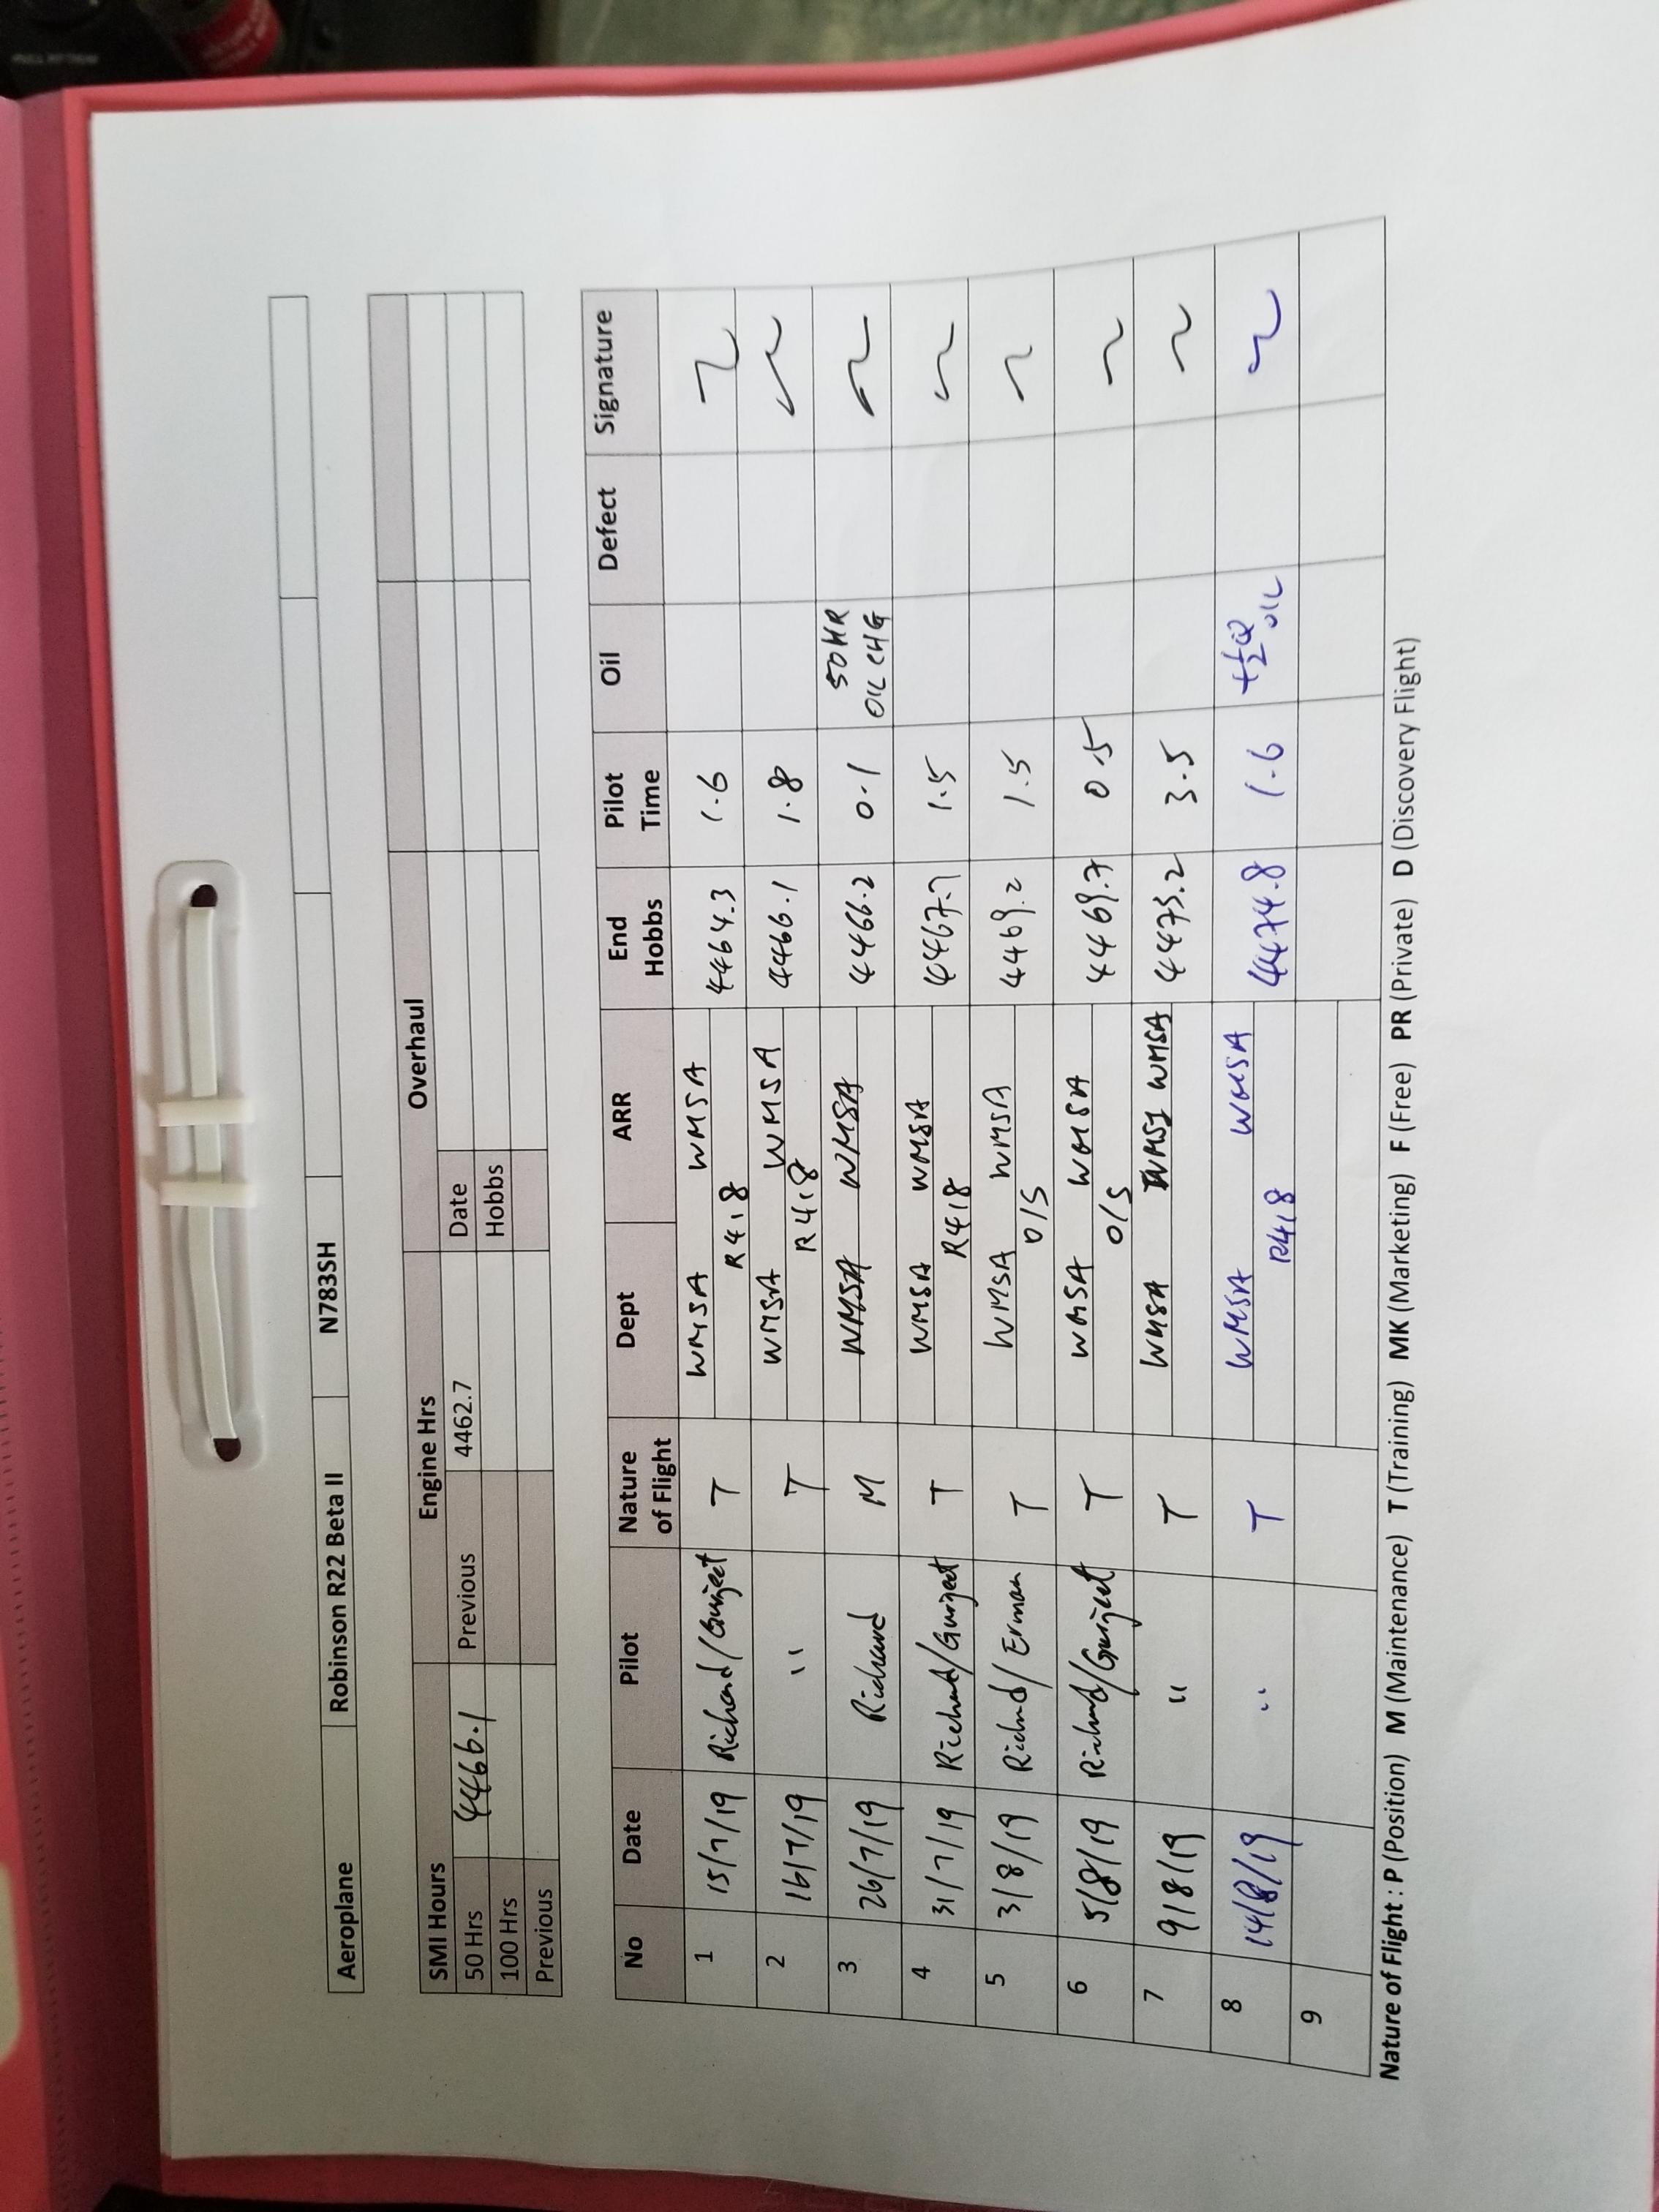 Aeroplane Robinson R22 Beta II N783SH
SMI Hours Engine Hrs Overhaul
50 Hrs 4466.1 Previous 4462.7 Date
100 Hrs Hobbs
Previous
No Date Pilot Nature of Flight Dept ARR End Hobbs Pilot Time Oil Defect Signature
1 15/7/19 Richard/Gurjeet T WMSA WMSA 4464.3 1.6
R418
2 16/7/19 " T WMSA WMSA 4466.1 1.8
R418
3 26/7/19 Richard M WMSA WMSA 4466.2 0.1 50HR
OIL CHG
4 31/7/19 Richard/Gurjeet T WMSA WMSA 4467.7 1.5
R418
5 3/8/19 Richard/Erman T WMSA WMSA 4469.2 1.5
O/S
6 5/8/19 Richard/Gurjeet T WMSA WMSA 4469.7 0.5
O/S
7 9/8/19 " T WMSA WMSA 4473.2 3.5
8 14/8/19 " T WMSA WMSA 4474.8 1.6 +½Q OIL
R418
9
Nature of Flight : P (Position) M (Maintenance) T (Training) MK (Marketing) F (Free) PR (Private) D (Discovery Flight)